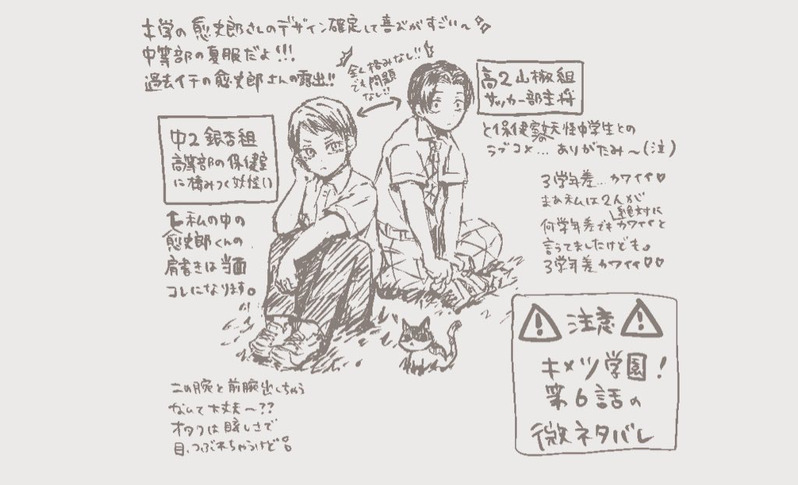 キ学の愈史郎さんのデザイン確定して喜びがすごい〜
中等部の夏服だよ!!!
過去イチの愈史郎さんの露出!!
全く絡みなし!!
でも問題
なし!!
高2 山椒組
サッカー部主将
中2 銀杏組
高等部の保健室
に棲みつく妖怪い
と保健室の妖怪中学生との
ラブコメ… ありがたみ〜(注)
3学年差…カワイイ♡
まぁ私は2人が
何学年差でも絶対にカワイイと
言ってましたけども。
3学年差カワイイ♡♡
←私の中の
愈史郎くんの
肩書きは当面
コレになります。
二の腕と前腕出しちゃう
なんて大丈夫〜??
オタクは眩しさで
目、つぶれちゃうけど
⚠注意⚠
キメツ学園!
第6話の
微ネタバレ